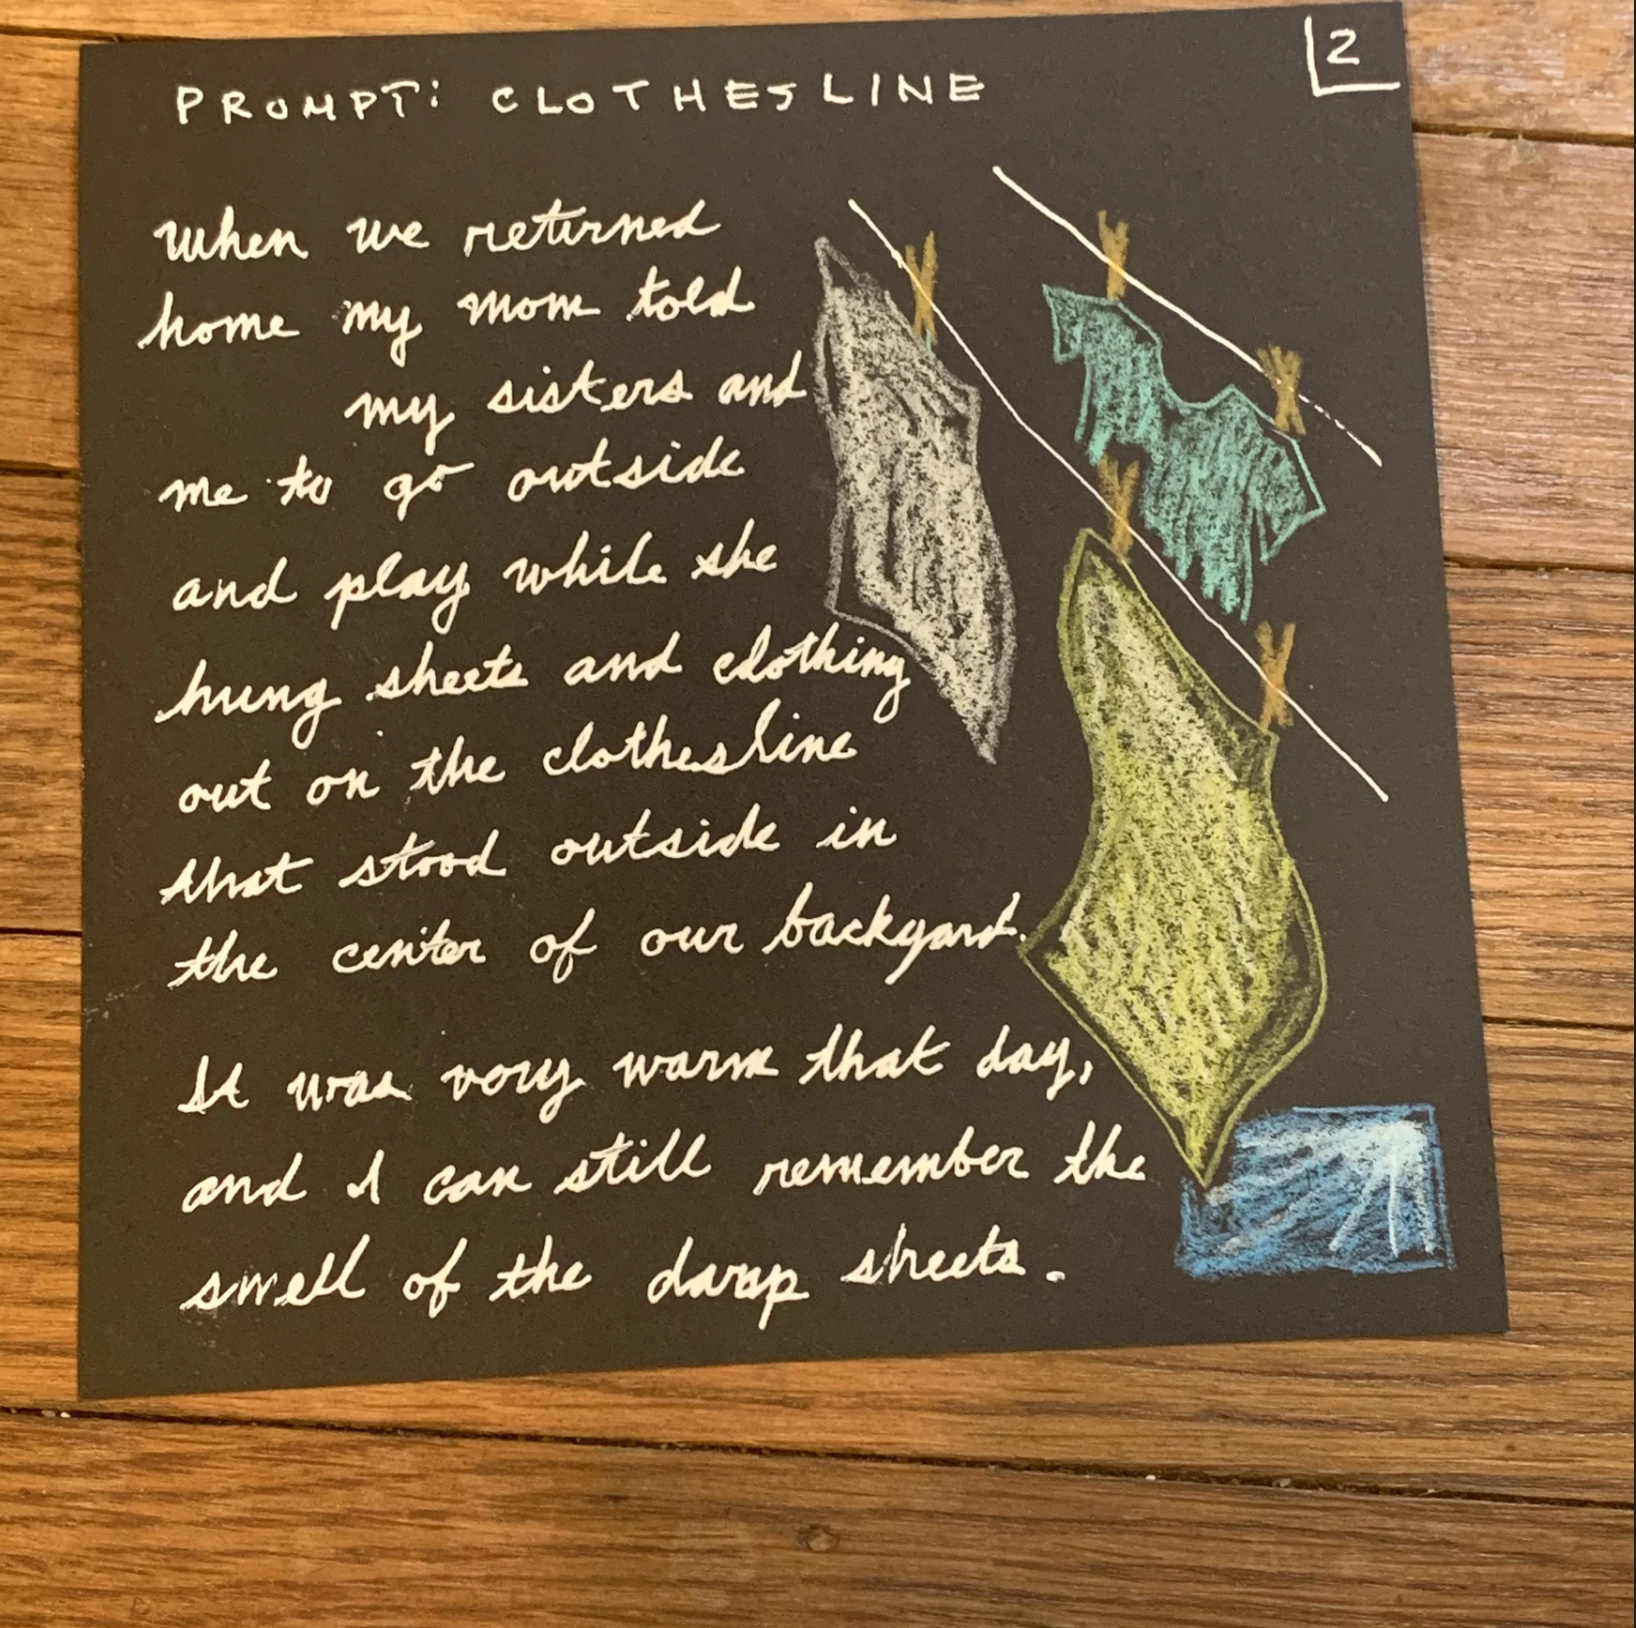 PROMPT: CLOTHESLINE
2
When we returned
home my mom told
my sisters and
me to go outside
and play while she
hung sheets and clothing
out on the clothesline
that stood outside in
the center of our backyard.
It was very warm that day,
and I can still remember the
smell of the damp sheets.